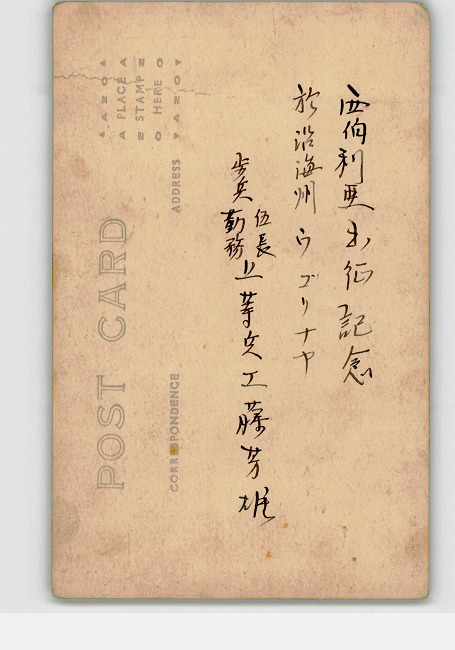 西伯利亜出征記念
於沿海州ウゴリナヤ
歩兵伍長勤務上等兵工藤芳雄
POST CARD
CORRESPONDENCE
ADDRESS
PLACE
STAMP
HERE
AZO
AZO